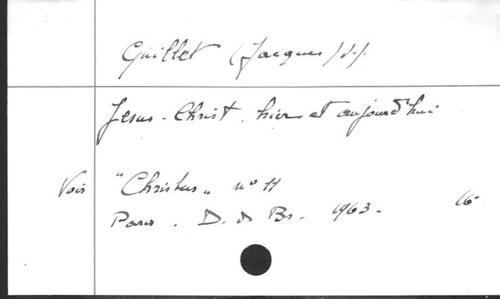 Guillet (Jacques) s.j.
Jesus-Christ, hier et aujourd'hui
Voir "Christus" n° 11
Paris. D. d Br. 1963. 16°